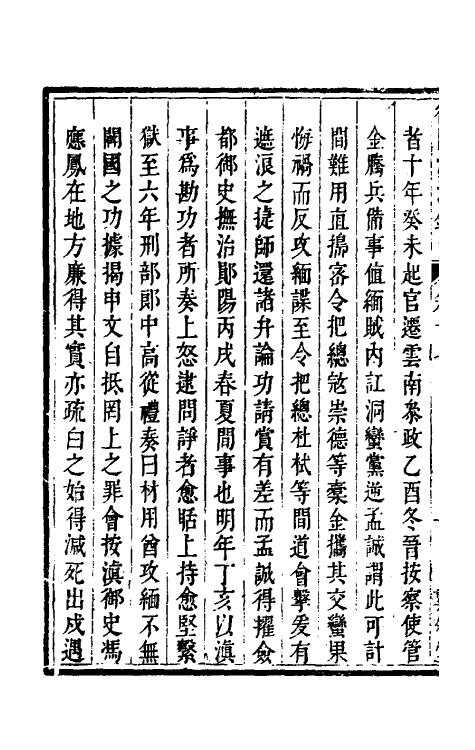 者十年癸未起官遷雲南叅政乙酉冬晉按察使管
金騰兵備事值緬賊內訌洞蠻黨逆孟誠謂此可計
間難用直搗密令把總寇崇德等橐金攜其交蠻果
悔禍而反攻緬諜至令把總杜栻等間道會擊爰有
遮浪之捷師還諸弁論功請賞有差而孟誠得擢僉
都御史撫治鄖陽丙戌春夏間事也明年丁亥以滇
事爲勘功者所奏上怒逮問諍者愈聒上持愈堅繫
獄至六年刑部郎中高從禮奏曰材用酋攻緬不無
闢國之功據揭申文自抵罔上之罪會按滇御史馮
應鳳在地方廉得其實亦疏白之始得減死出戍遇